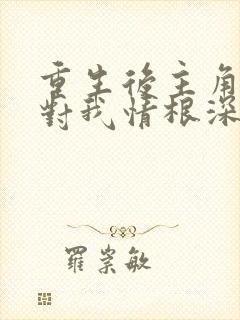 重生後主角
對我情根深
羅崇敏